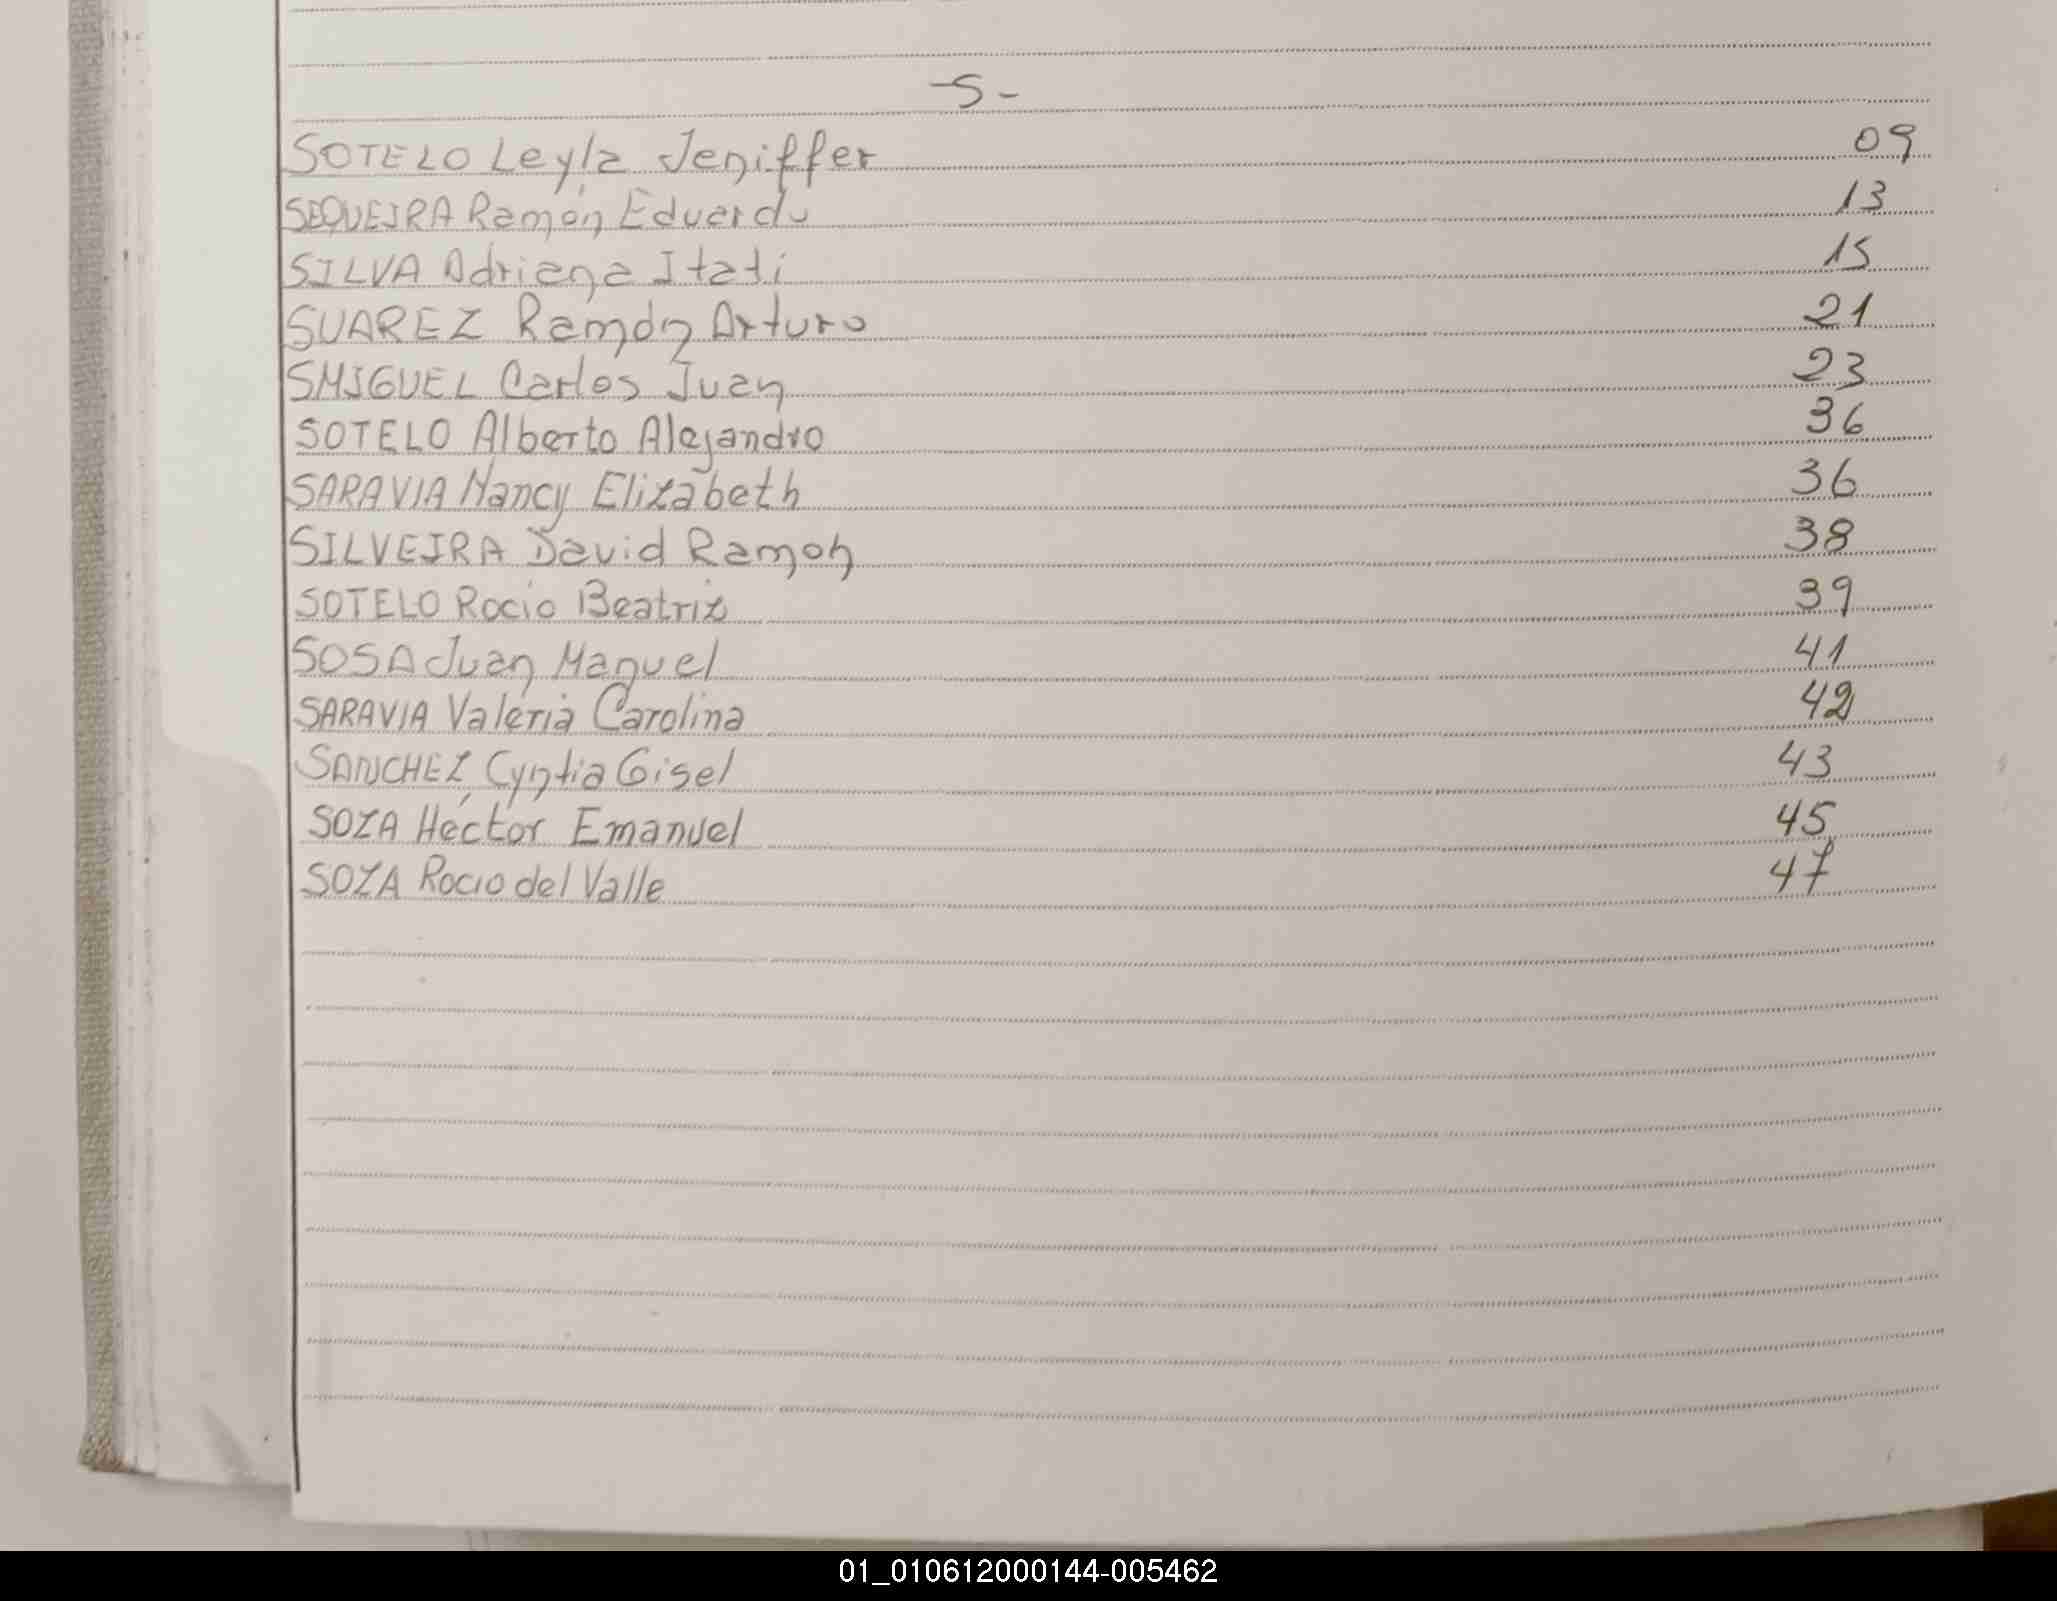 -S-
SOTELO Leyla Jeniffer 09
SEQUEIRA Ramón Eduardo 13
SILVA Adriana Itatí 15
SUAREZ Ramón Arturo 21
SMIGUEL Carlos Juan 23
SOTELO Alberto Alejandro 36
SARAVIA Nancy Elizabeth 36
SILVEIRA David Ramon 38
SOTELO Rocio Beatriz 39
SOSA Juan Manuel 41
SARAVIA Valeria Carolina 42
SANCHEZ Cyntia Gisel 43
SOZA Héctor Emanuel 45
SOZA Rocio del Valle 47
01_010612000144-005462